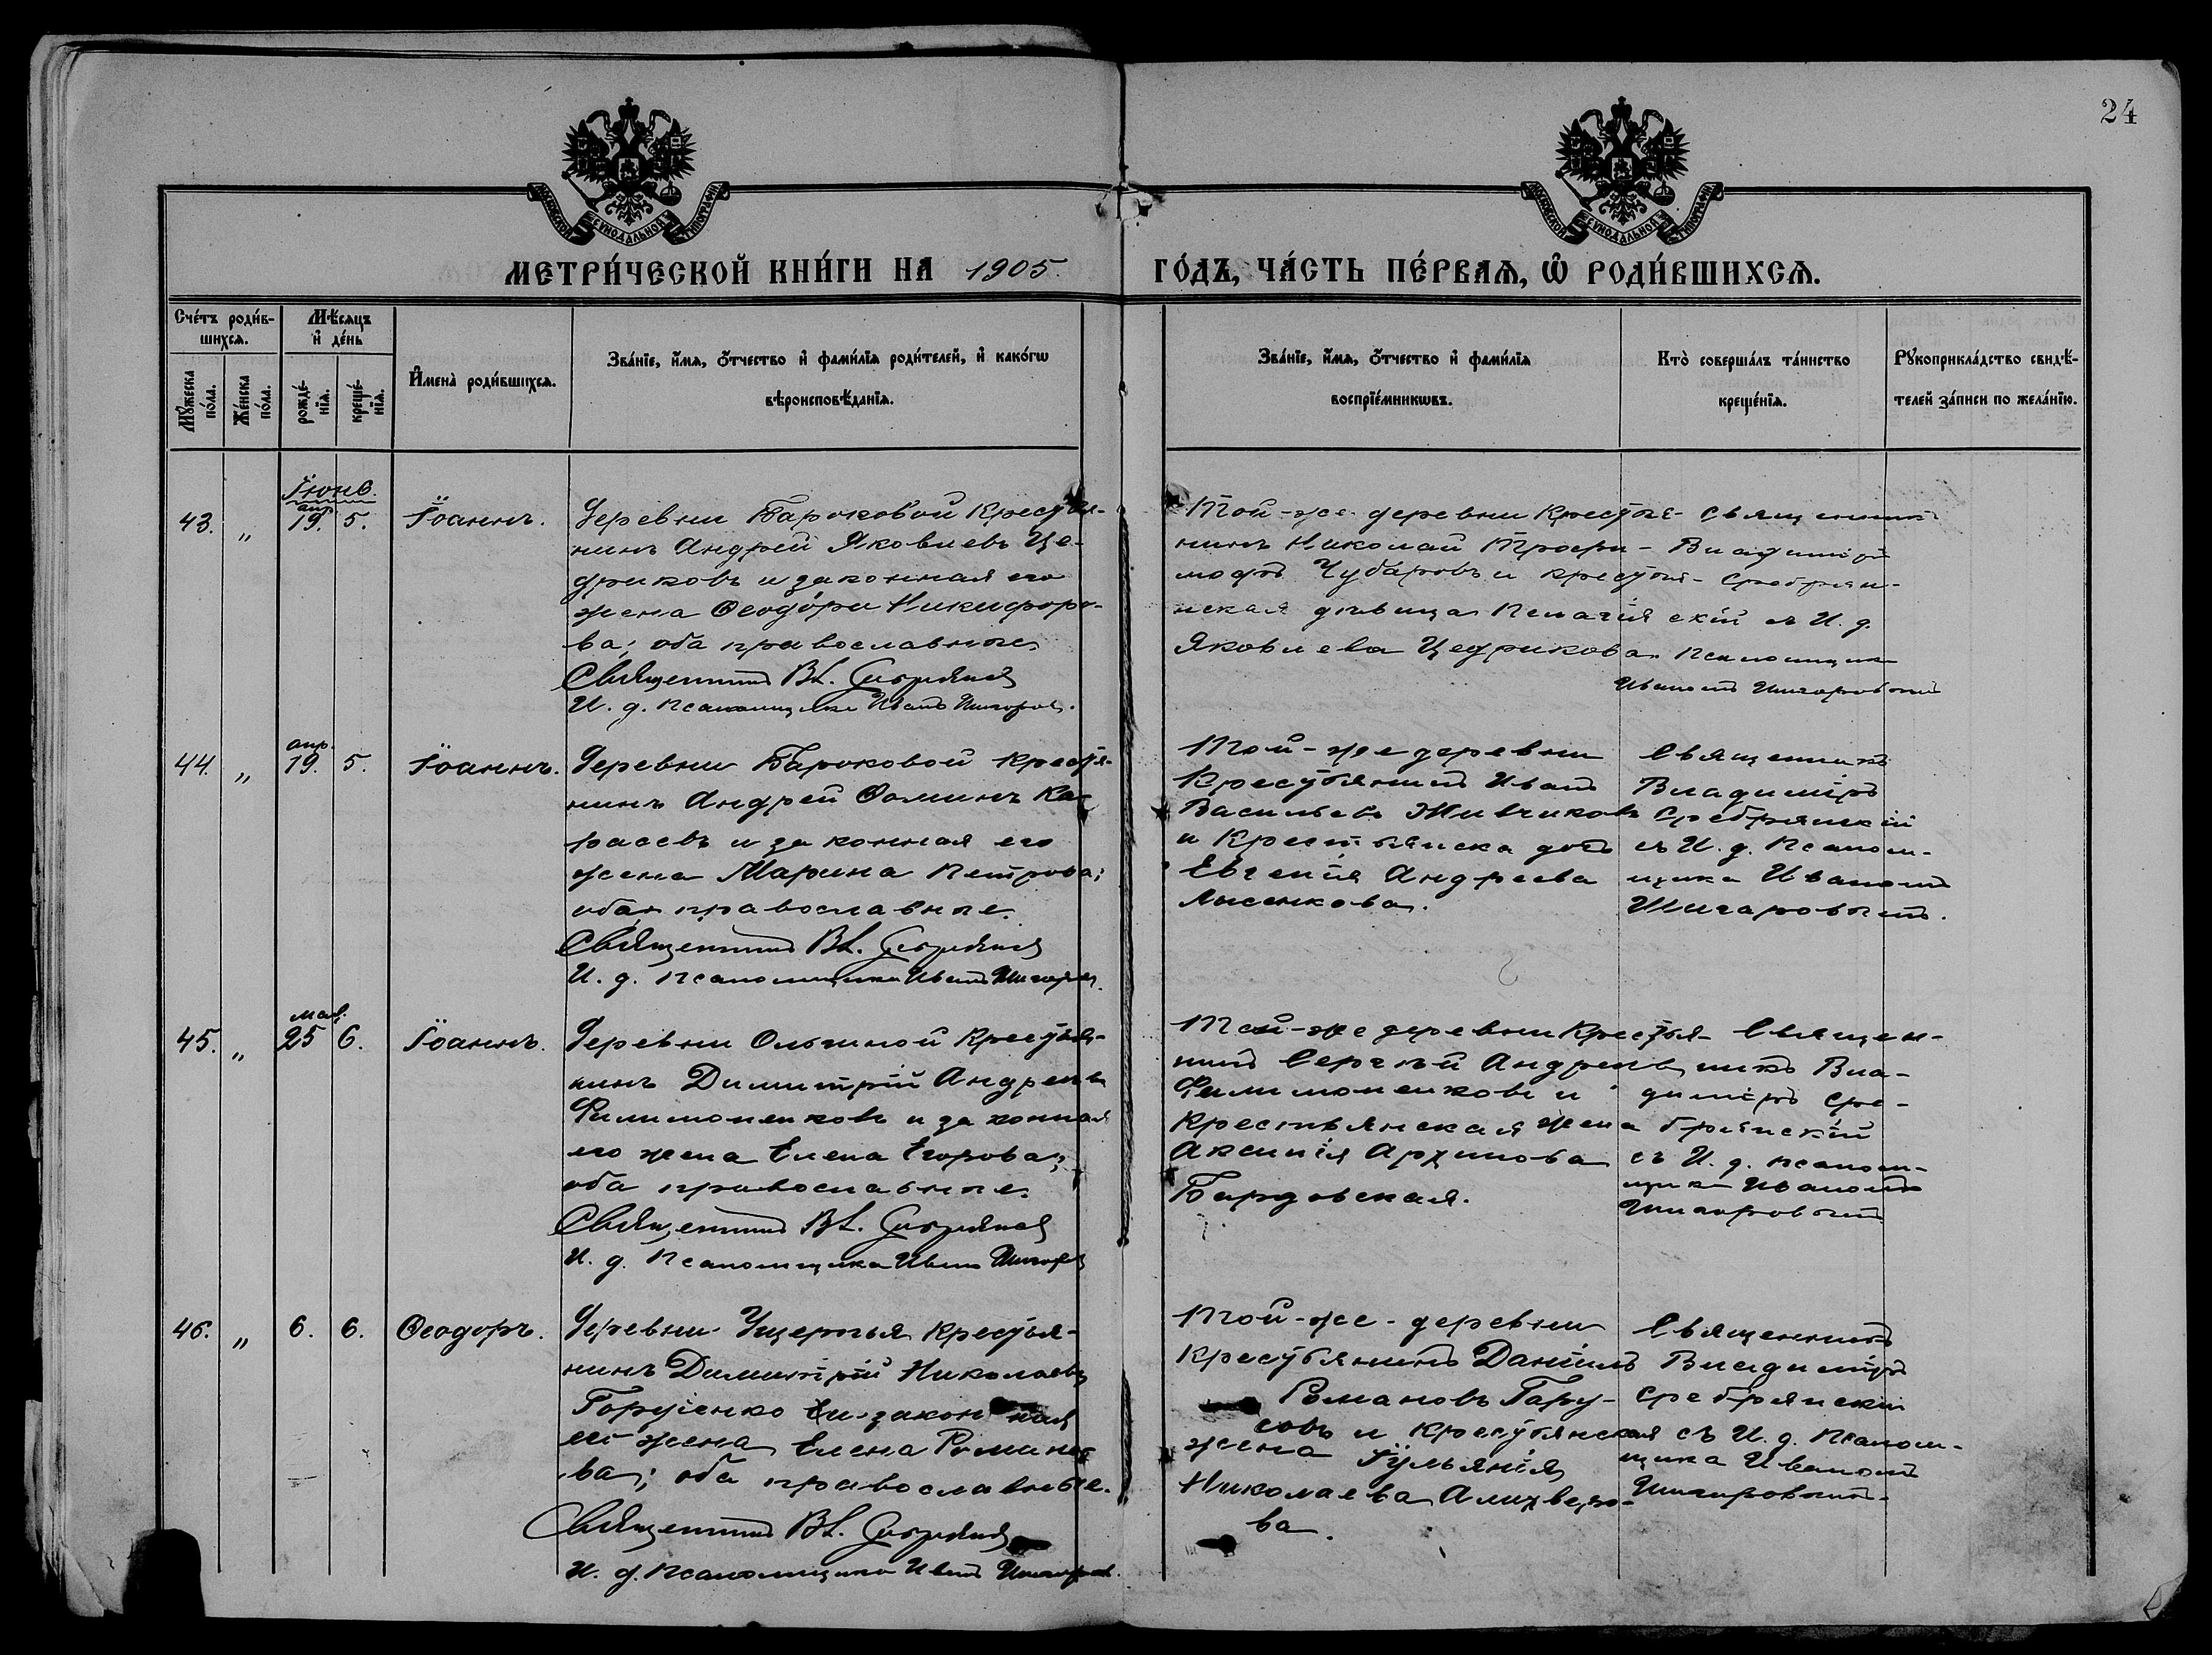 24
МОСКОВСКОЙ СѴНОДАЛЬНОЙ ТИПОГРАФІИ
МОСКОВСКОЙ СѴНОДАЛЬНОЙ ТИПОГРАФІИ
МЕТРИ́ЧЕСКОЙ КНИ́ГИ НА 1905. ГО́ДЪ, ЧА́СТЬ ПЕ́РВАѦ, Ѡ҆ РОДИ́ВШИХСѦ.
Сче́тъ роди́в-
шихсѧ.
Мꙋ́жеска
по́ла.
Же́нска
по́ла.
Мѣ́сѧцъ
и҆ де́нь
рожде́-
нїѧ.
креще́-
нїѧ.
И҆мена̀ роди́вшихсѧ.
Зва́нїе, и҆́мѧ, ѻ҆́тчество и҆ фами́лїѧ роди́телей, и҆ како́гѡ
вѣроисповѣ́данїѧ.
Зва́нїе, и҆́мѧ, ѻ҆́тчество и҆ фами́лїѧ
воспрїе́мникѡвъ.
Кто̀ соверша́лъ та́инство
креще́нїѧ.
Рꙋкоприкла́дство свидѣ́-
телей за́писи по жела́нїю.
Іюнь.
апр.
43. " 19. 5. Іоаннъ.
Деревни Барсковой Крестья-
нинъ Андрей Яковлевъ Це-
дриковъ и законная его
жена Ѳеодора Никифоро-
ва; оба православные
Священникъ Вл. Сребрянскій
И. д. псаломщика Иванъ
Той-же деревни Крестья-
нинъ Николай Трофи-
мовъ Чубаровъ и крестья-
нская дѣвица Пелагія
Яковлева Цедрикова.
Священникъ
Владиміръ
Сребрян-
скій съ И. д.
Псаломщика
Иваномъ
апр.
44. " 19. 5. Іоаннъ.
Деревни Барсковой Крестья-
нинъ Андрей Ѳоминъ Ка-
расевъ и законная его
жена Марина Петрова;
оба православные.
Священникъ Вл. Сребрянскій
И. д. Псаломщика Иванъ
Той-же деревни
Крестьянинъ Иванъ
Васильевъ Живчиковъ
и Крестьянска дочь
Евгенія Андреева
Лысенкова.
Священникъ
Владиміръ
Сребрянскій
съ И. д. Псалом-
щика Иваномъ
мая.
45. " 25 6. Іоаннъ.
Деревни Ольгиной Крестья-
нинъ Димитрій Андреевъ
Филимоненковъ и законная
его жена Елена Егорова;
оба православные
Священникъ Вл. Сребрянскій
И. д. Псаломщика Иванъ
Той-же деревни Крестья-
нинъ Сергѣй Андреевъ
Филимоненковъ и
Крестьянская жена
Аксинія Архипова
Бардовская.
Священ-
никъ Вла-
диміръ Сре-
брянскій
съ И. д. псалом-
щика Иваномъ
46. " 6. 6. Ѳеодоръ.
Деревни Ущерпья Крестья-
нинъ Димитрій Николаевъ
законная
его жена Елена Романо-
ва; оба православные.
Священникъ Вл. Сребрянскій
И. д. Псаломщика Иванъ
Той-же-деревни
крестьянинъ Даніилъ
Романовъ Гару-
совъ и крестьянская
жена Іульянія
Николаева
ва.
Священникъ
Владиміръ
Сребрянскій
съ И. д. Псалом-
щика Иваномъ